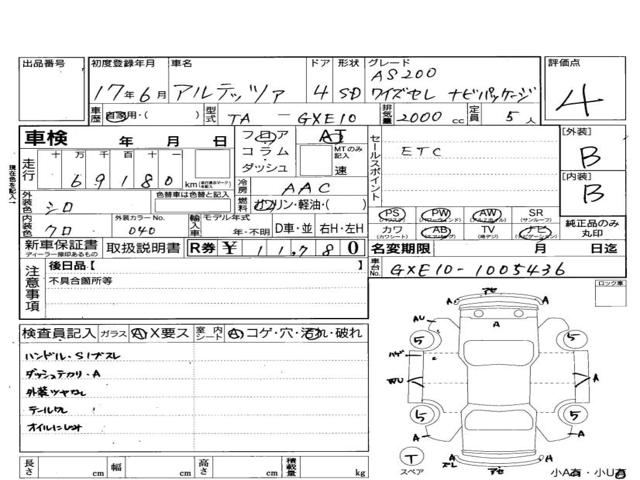 出品番号 初度登録年月 車名 ドア 形状 グレード 評価点
AS200
17年6月 アルテッツァ 4 SD ワイズセレ ナビパッケージ 4
車歴 自家用・( ) 型式 TA - GXE10 排気量 2000 cc 定員 5人
車検 年 月 日 フロア AT セールスポイント ETC [外装]
コラム MTのみ記入 B
ダッシュ 速
走行 十万千百十一
69180 km 冷房 AAC [内装]
B
外装色 シロ 色替車は色替と記入 燃料 ガソリン・軽油・( )
PS PW AW SR
(サンルーフ)
内装色 クロ 外装カラーNo. 040 輸入車 モデル年式 年・不明 D車・並 右H・左H カワ AB TV ナビ 純正品のみ丸印
(カワシート) (エアバッグ) (ナビゲーション)
新車保証書 取扱説明書 R券 ¥ 11,780 名変期限 月 日迄
ディーラー捺印あるもの
車台No. GXE10-1005436
注意事項 後日品【 】
不具合箇所等
ロック車
検査員記入 ガラス A X要ス 室内シート A コゲ・穴・汚れ・破れ
ハンドル・Sノブスレ
ダッシュテカリ・A
外装ツヤなし
オイルにじみ
AU A A A
5 5
A
5 5
A A A A
T
スペア
小A有・小U有
長さ cm 幅 cm 高さ cm 積載量 kg
現在色を記入